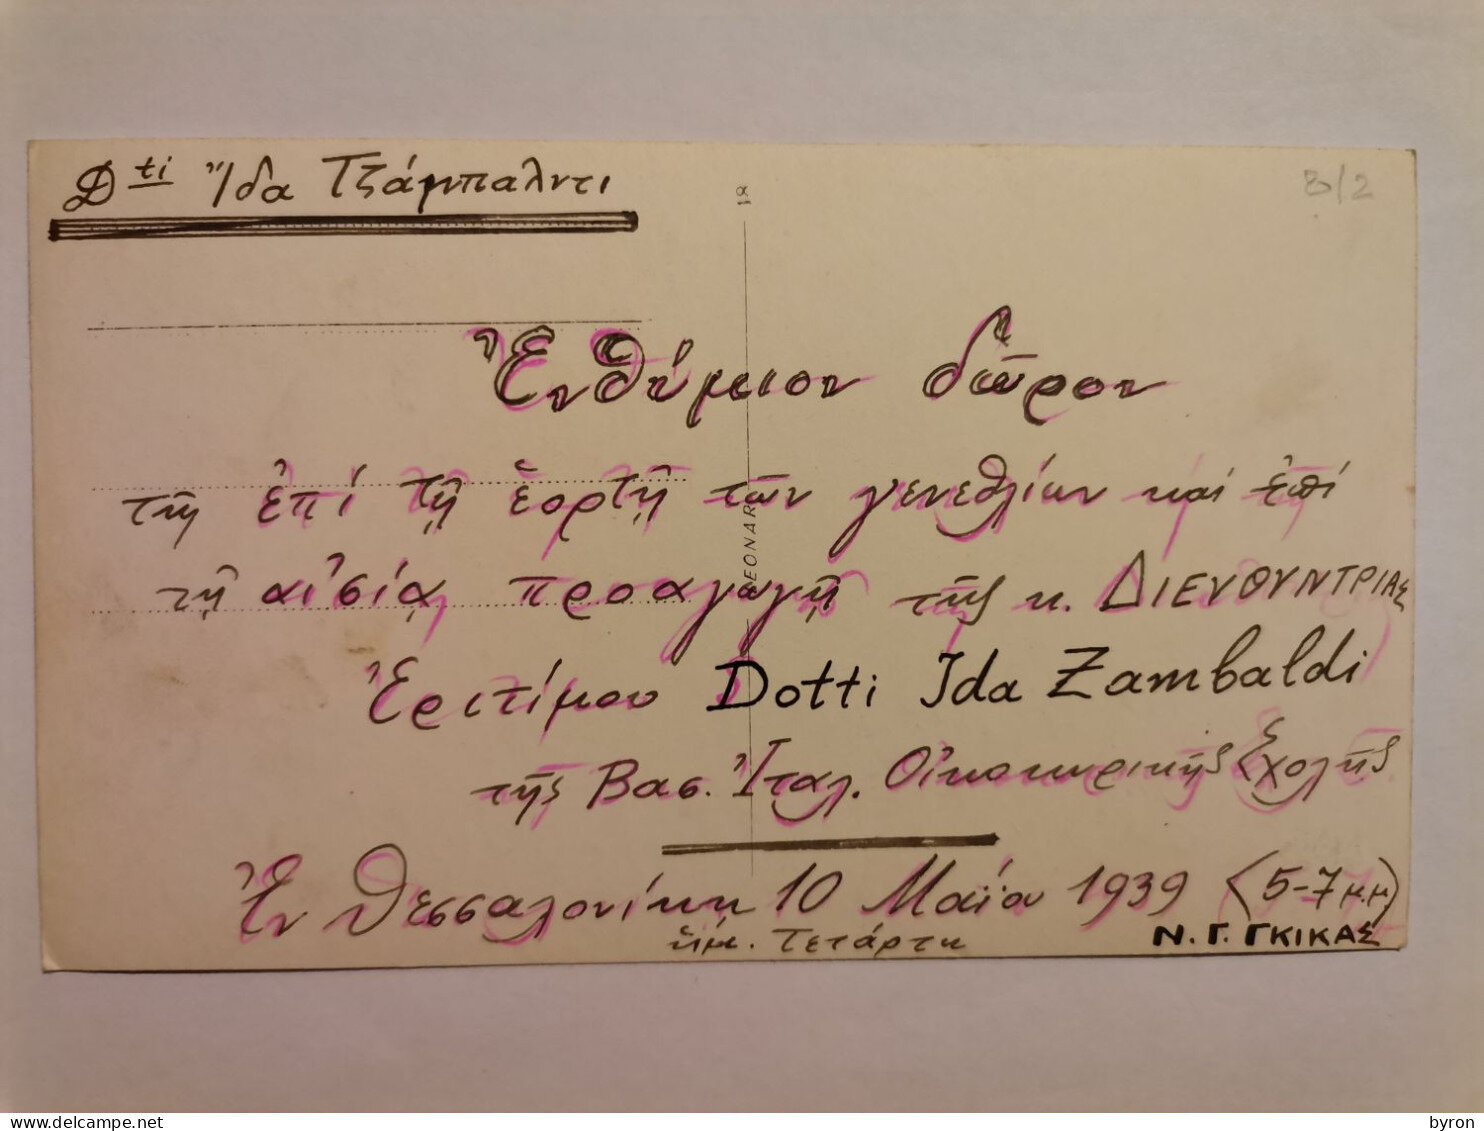 Δτί Ἴδα Τζάμπαλντι
3/2
Ἐνθύμειον δῶρον
τῇ ἐπί τῇ ἑορτῇ τῶν γενεθλίων καί ἐπί
τῇ αἰσίᾳ προαγωγῇ τῆς κ. ΔΙΕΥΘΥΝΤΡΙΑΣ
Ἐριτίμου Dotti Ida Zambaldi
τῆς Βασ. Ἰταλ. Οἰκοκυρικῆς Σχολῆς
Ἐν Θεσσαλονίκῃ 10 Μαΐου 1939 (5-7 μ.μ)
ἡμ. Τετάρτη
Ν. Γ. ΓΚΙΚΑΣ
LEONAR
delcampe.net
byron